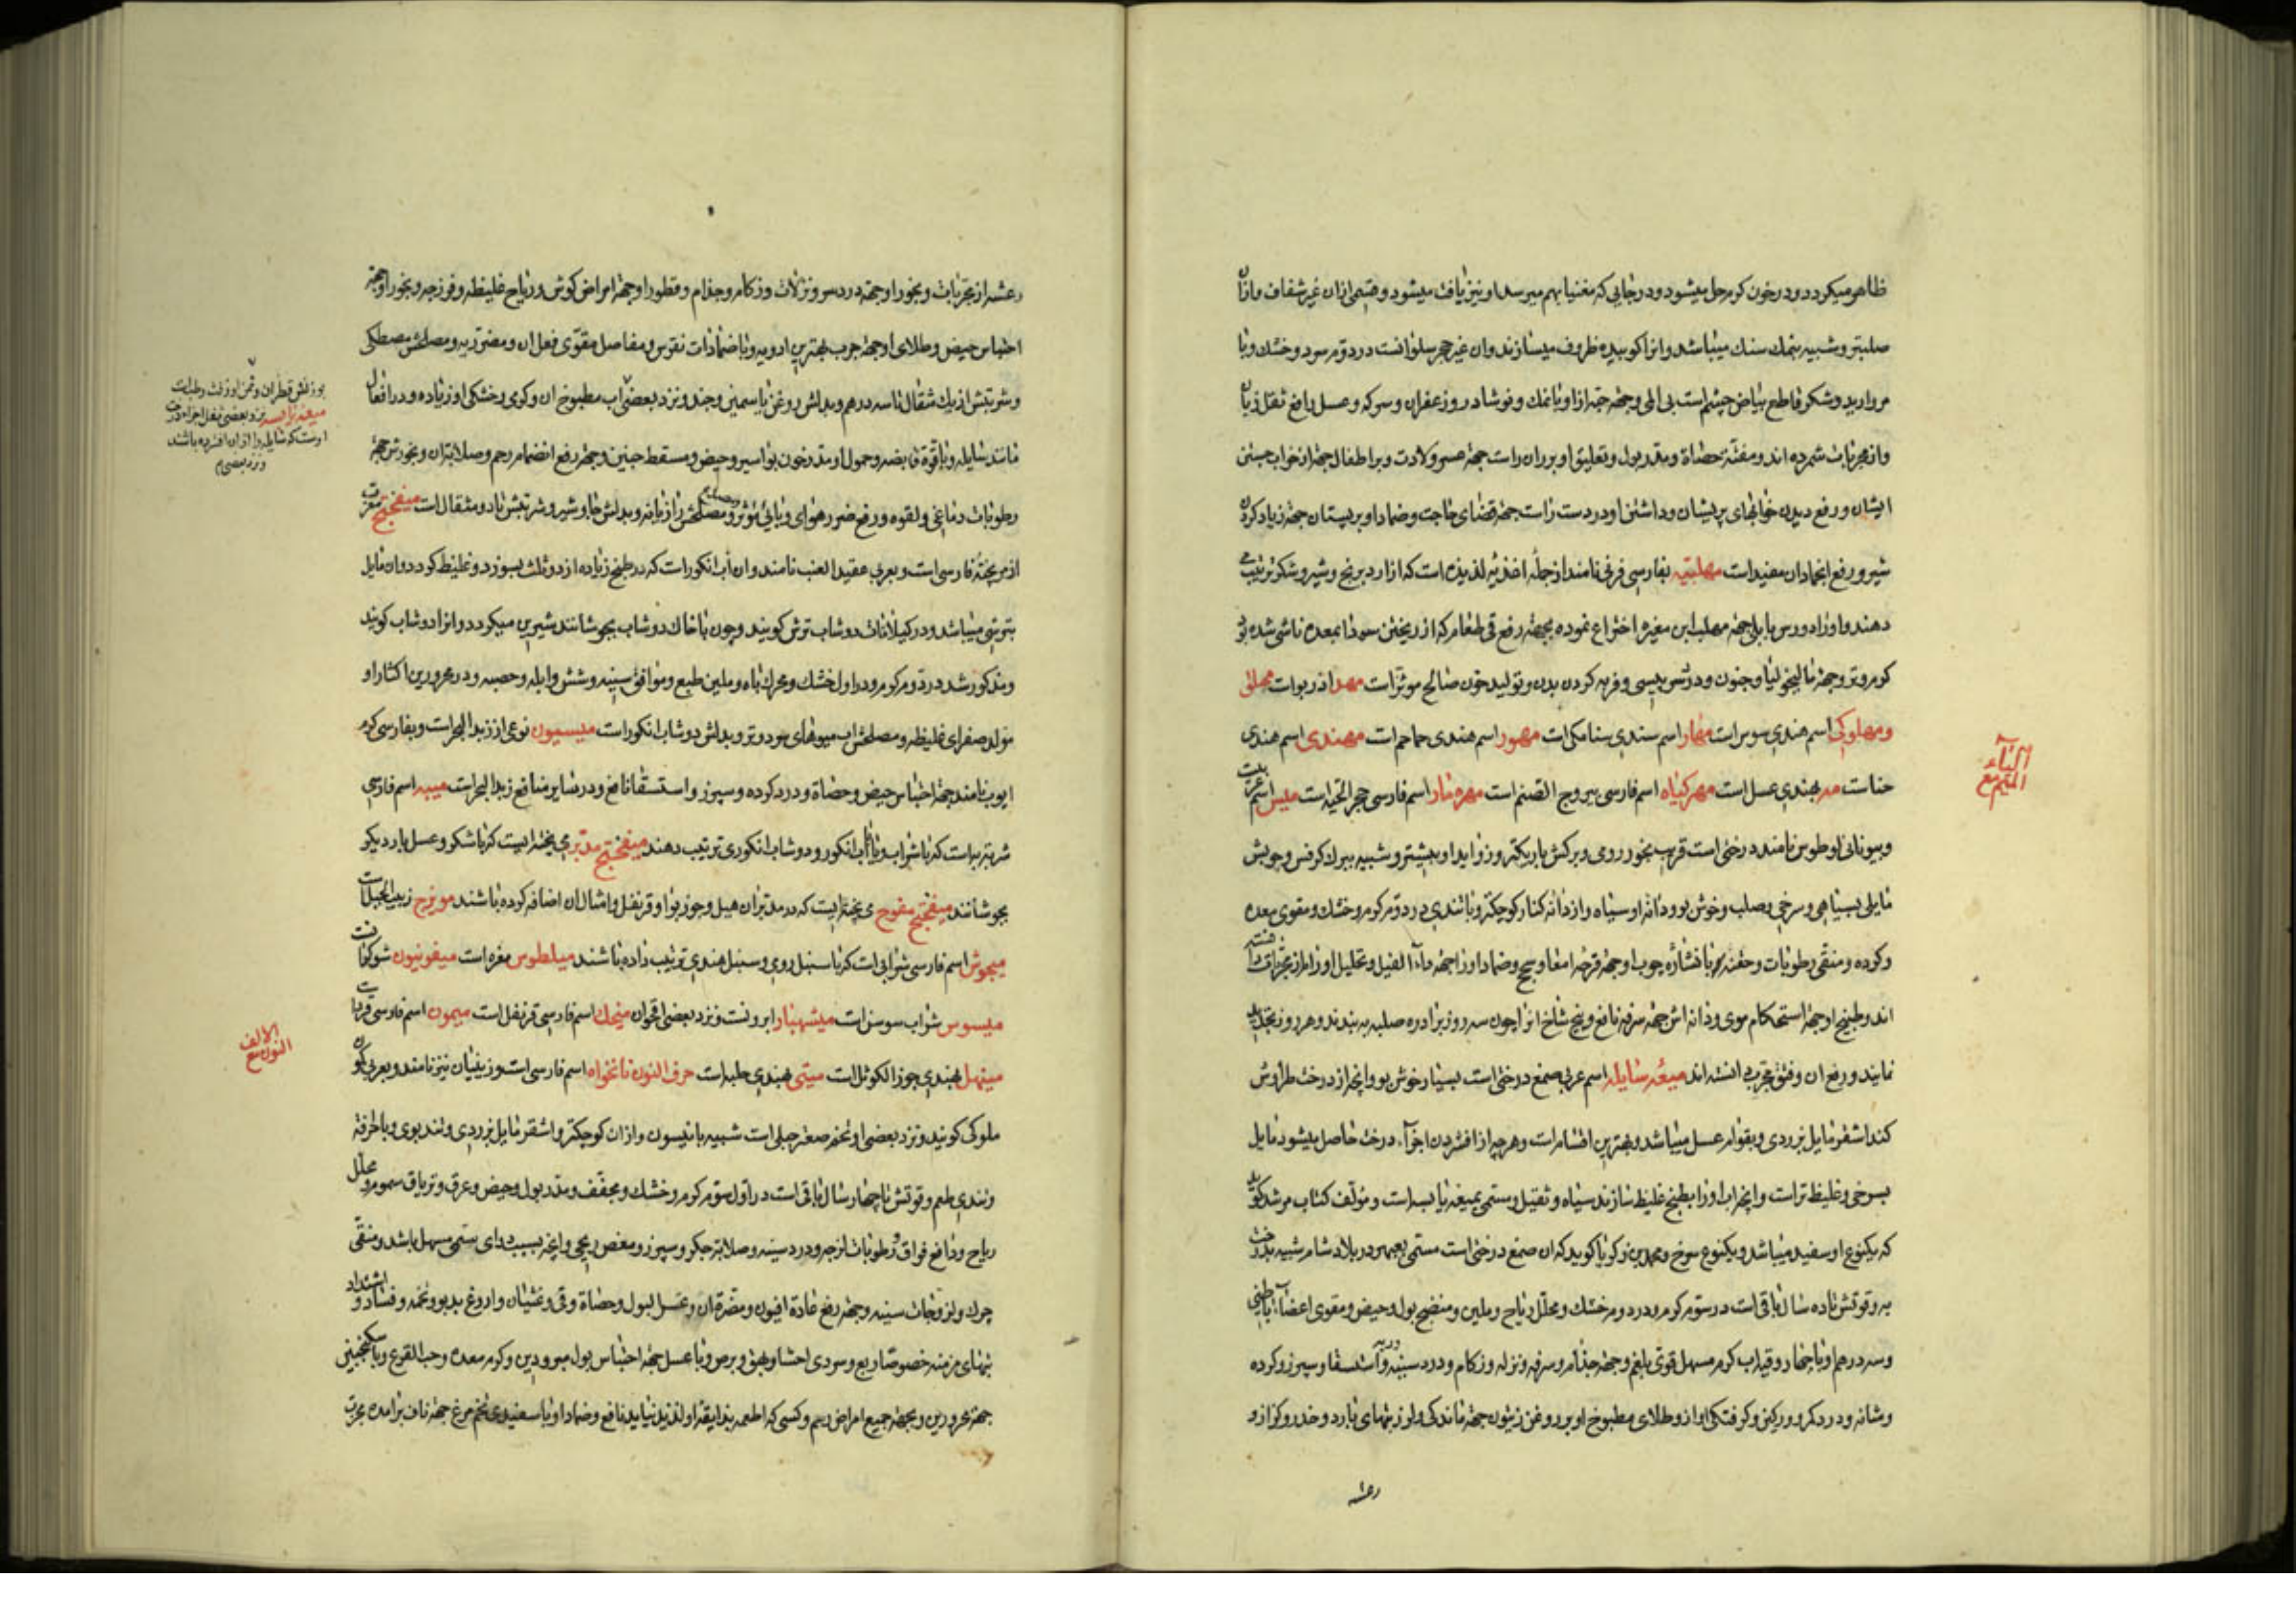 ظاهر میکردد و در خون کرم حل میشود و در جایی که مغنیسا بهم میرسد او نیز یافت میشود و قسمی ازان غیر شفاف و ازان
صلبتر و شبیه بنمك سنك میباشد و انرا کوبیده ظروف میسازند وان غیر حجر سلوانست در دوم سرد و خشك و با
مروارید و شکر قاطع بیاض چشم است بی الم و جهة جرب ازا و بانمك و نوشادر و زعفران و سرکه و عسل رافع ثقل زبان
واز مجربات شمرده اند و مفتت حصاة و مدر بول و تعلیق او بر ران راست جهة عسر ولادت و بر اطفال جهة از خواب جستن
ایشان و رفع دیدن خوابهای پریشان و داشتن او در دست راست جهة قضای حاجت و ضماد او بر پستان جهة زیاد کردن
شیر و رفع انجماد ان مفید است مهلبیه بفارسی فرنی نامند از جمله اغذیه لذیذه است که از ارد برنج و شیر و شکر ترتیب
دهند و او را دورس بابلی جهة مهلب ابن مغیره اختراع نموده بجهة رفع قی طعام که از ریختن سودا بمعده ناشی شده بود
کرم و تر و جهة مالیخولیا و جنون و وسواس یبسی و فربه کردن بدن و تولید خون صالح موثر است مهد اذربوات محلق
ومهلوکی اسم هندی سوس است مهار اسم سندی سنا مکی است مهور اسم هندی حماحم است مهندی اسم هندی
حناست مد بهندی عسل است مهرکیاه اسم فارسی یبروج الصنم است مهره مار اسم فارسی حجر الحیه است میس اسم عربیست
و بیونانی لوطوس نامند درختی است قریب بنخود رومی و برکش باریکتر و زواید او بیشتر و شبیه ببرك کرفس و چوبش
مایل بسیاهی و سرخی و صلب و خوش بو و دانه او سیاه و از دانه کنار کوچکتر و با تندی در دوم کرم و خشك و مقوی معده
و کرده و منقی رطوبات و حقنه با نشاره چوب او جهة قرحه امعا و سحج و ضماد او را جهة داء الفیل و تحلیل اورام از مجربات دانسته
اند و طبیخ او جهة استحکام موی و دانه اش جهة سرفه نافع و بیخ شاخ انرا چون سه روز برا دره صلبیه به بندند و هر روز تجدید
نمایند و رفع ان وفتق مجرب دانسته اند میعه سایله اسم عربی صمغ درختی است بسیار خوش بو و انچه از درخت طراوش
کند اشقر مایل بزردی و بقوام عسل میباشد و بهترین اقسام است و هر چه از افشردن اجزاء درخت حاصل میشود مایل
بسرخی و غلیظ تر است و انچه اب او را بطبخ غلیظ سازند سیاه و ثقیل و مسمی بمیعه یابسه است و مؤلف کتاب مرشد کوید
که یکنوع او سفید میباشد و یکنوع سرخ و محمد بن زکریا کوید که ان صمغ درختی است مسمی بعبهر و در بلاد شام شبیه بدرخت
به و قوتش تا ده سال باقی است در سوم کرم و در دوم خشك و محلل ریاح و ملین و منضج بول و حیض و مقوی اعضاء باطنی
و سه درهم او با چهار وقیه اب کرم مسهل قوی بلغم و جهة جذام و سرفه و نزله و زکام و درد سینه و ریه و استسقا و سپرز و کرده
و مثانه و درد کمر و ورکین و کرفتکی اواز و طلای مطبوخ او بر روغن زیتون جهة ماندکی و لرز تبهای بارد و خدر و کزاز و
رعشه
الیاء
المیم مع
رعشه از مجربات و بخور او جهة درد سر و نزلات و زکام و جذام و قطور او جهة امراض کوش و ریاح غلیظه و فرزجه و بخور او جهة
احتباس حیض و طلای او جهة جرب بهترین ادویه و با ضمادات نقرس و مفاصل مقوی فعل ان و مضر ریه و مصلحش مصطکی
و شربتش از یك مثقال تا سه درهم و بدلش روغن یاسمین و جند و نزد بعضی اب مطبوخ ان و کرمی و خشکی او زیاده و در افعال
مانند سایله و با قوة قابضه و حمول او مدر خون بواسیر و حیض و مسقط جنین و جهة رفع انضمام رحم و صلابت ان و بخورش جهة
رطوبات دماغی و لقوه و رفع ضرر هوای وبائی موثر و مصلحش رازیانه و بدلش جاوشیر و شربتش تا دو مثقال است میفختج معرب
از می پخته فارسی است و بعربی عقید العنب نامند وان اب انکور است که در طبخ زیاده از دو ثلث بسوزد و غلیظ کردد وان مایل
بترشی میباشد و در کیلانات دوشاب ترش کویند و چون با خاك دوشاب بجوشانند شیرین میکردد و انرا دوشاب کویند
و مذکور شد در دوم کرم و در اول خشك و محرك باه و ملین طبع و موافق سینه و شش و ابله و حصبه و در محرورین اکثار او
مولد صفرای غلیظه و مصلحش اب میوهای سرد و تر و بدلش دوشاب انکور است میسیون نوعی از زبد البحر است و بفارسی کرم
ایوب نامند جهة احتباس حیض و حصاة و درد کرده و سپرز و استسقا نافع و در سایر منافع زبد البحر است میبه اسم فارسی
شربت به است که با شراب و یا اب انکور و دوشاب انکوری ترتیب دهند میفختج مدبر می پخته ایست که با شکر و عسل بار دیکر
بجوشانند میفختج مفوح می پخته ایست که در مدبر ان هیل و جوز بوا و قرنفل و امثال ان اضافه کرده باشند مویزج زبیب الجبل است
میجوش اسم فارسی شرابی است که با سنبل رومی و سنبل هندی ترتیب داده باشند میلطوس مغره است میفونیون شوکران است
میسوس شراب سوسن است میشبهار ابرونست و نزد بعضی اقحوان میخك اسم فارسی قرنفل است میمون اسم فارسی قرد است
مینهل بهندی جوز الکوثل است میتی بهندی حلبه است حرف النون نانخواه اسم فارسی است و زنیان نیز نامند و بعربی کمون
ملوکی کویند و نزد بعضی او تخم صعتر جبلی است شبیه بانیسون و ازان کوچکتر و اشقر مایل بزردی و تند بوی و با حرافت
و تندی طعم و قوتش تا چهار سال باقی است در اول سوم کرم و خشك و مجفف و مدر بول و حیض و عرق و تریاق سموم و محلل
ریاح و دافع فواق و رطوبات لزجه و درد سینه و صلابت جکر و سپرز و مغص ریحی و انچه بسبب دوای سمی مسهل باشد و منقی
چرك و لزوجات سینه و جهة رفع عادة افیون و مضرة ان و عسر البول و حصاة و قی و غثیان و اروغ بدبو و تخمه و فساد و اشتداد
تبهای مزمنه خصوصا ربع و سردی احشا و بهق و برص و با عسل جهة احتباس بول مبرودین و کرم معده و حب القرع و با سکنجبین
جهة محرورین و بجهة جمیع امراض رحم و کسی که اطعمه بذایقه او لذیذ نیاید نافع و ضماد او با سفیدی تخم مرغ جهة ناف برامده مجرب
بوزنش قطران و ثمن او زفت رطبست
میعه یابسه نزد بعضی ثفل اجزاء درخت
اوست که سایله را ازان افشرده باشند
و نزد بعضی
الالف
النون مع